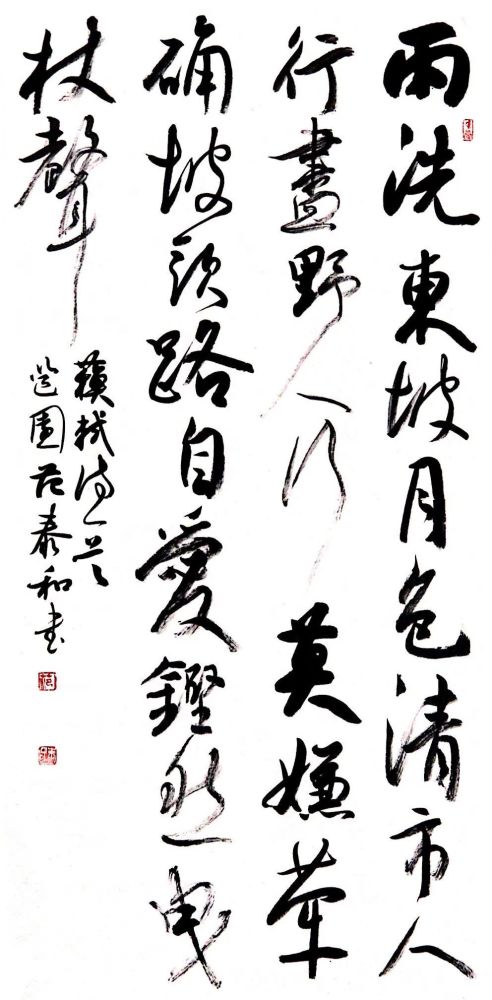 雨洗東坡月色清市人
行盡野人行莫嫌荦
确坡頭路自愛鏗然曳
杖聲
蘇軾詩一首
泰和书